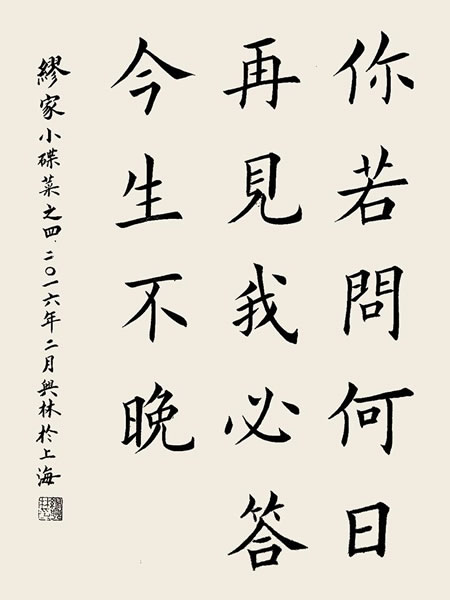 你若問何日
再見我必答
今生不晚
繆家小碟菜之四.二〇一六年二月興林於上海